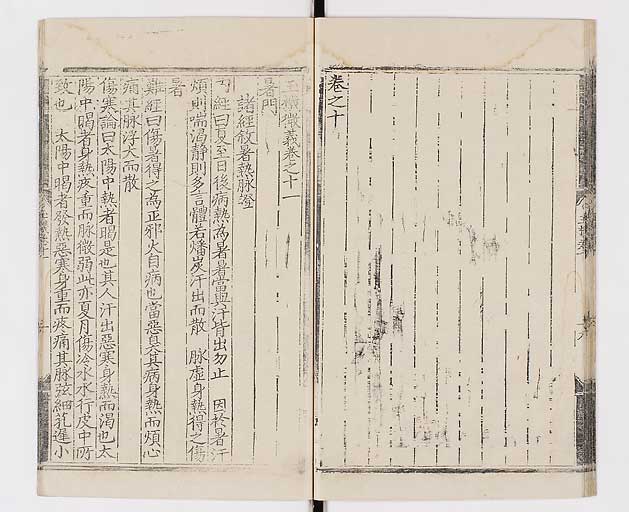 卷之十
玉機微義卷之十一
暑門
諸經敘暑熱脉證
內經曰夏至日後病熱為暑暑當與汗皆出勿止　因於暑汗
煩則喘渴靜則多言體若燔炭汗出而散　脉虛身熱得之傷
暑
難經曰傷暑得之為正邪火自病也當惡臭其病身熱而煩心
痛其脉浮大而散
傷寒論曰太陽中熱者暍是也其人汗出惡寒身熱而渴也太
陽中暍者身熱疼重而脉微弱此亦夏月傷冷水水行皮中所
致也　太陽中暍者發熱惡寒身重而疼痛其脉弦細芤遲小